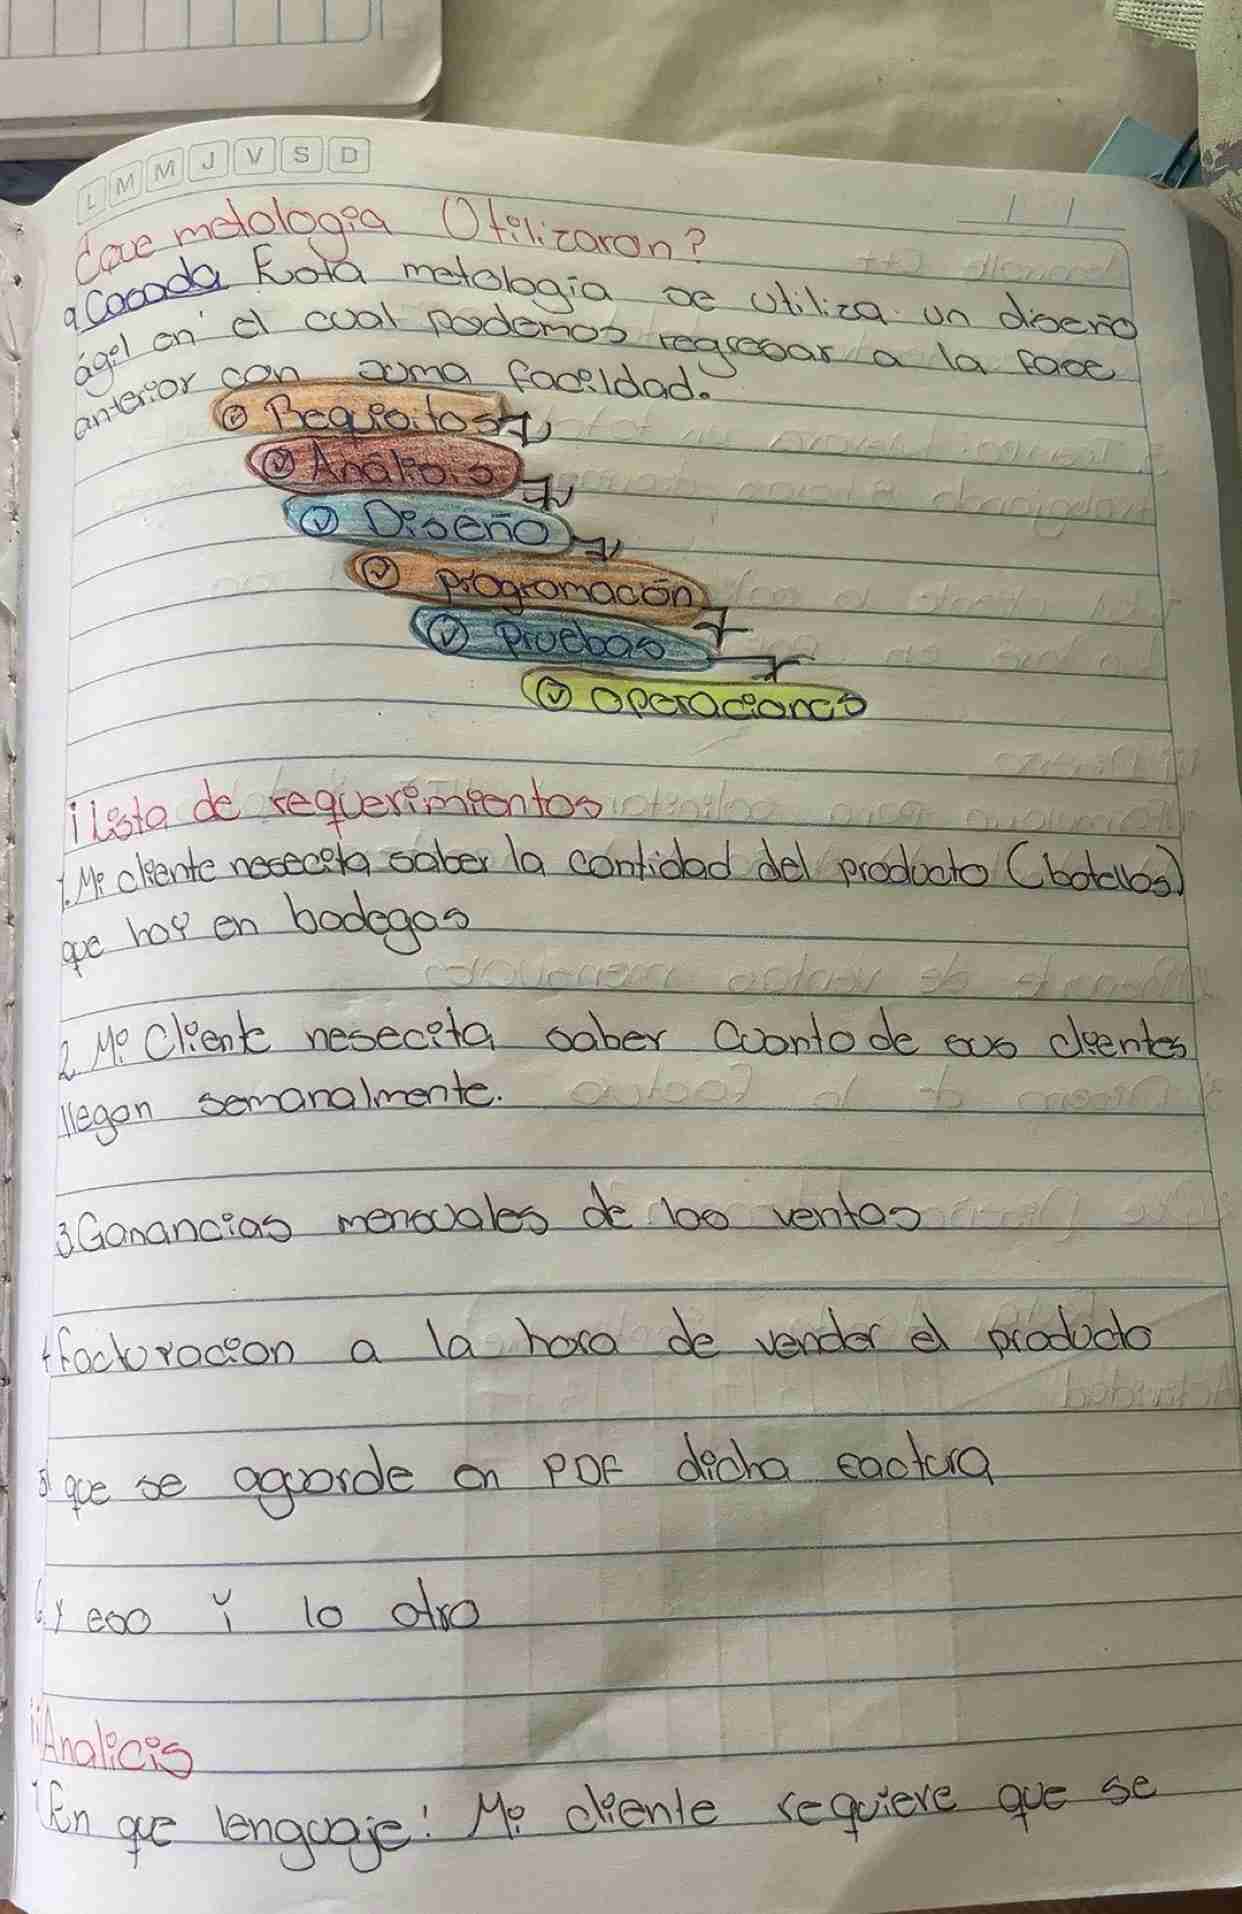 L M M J V S D
¿Que metologia Utilizaron?
a Cascada Esta metologia se utiliza un diseño
ágil en el cual podemos regresar a la fase
anterior con suma facilidad.
Requisitos
Análisis
Diseño
programacón
Pruebas
Operaciones
i Lista de requerimientos
1. Mi cliente nesecita saber la cantidad del producto (botellas)
que hay en bodegas
2. Mi Cliente nesecita saber cuanto de sus clientes
llegan semanalmente.
3 Ganancias mensuales de las ventas
4 facturacion a la hora de vender el producto
5 que se aguarde en PDF dicha factura
6. y eso y lo otro
ii Analicis
1 En que lenguaje: Mi cliente requiere que se